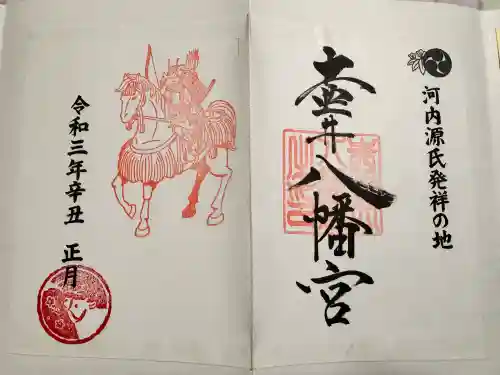 河内源氏発祥の地
壺井八幡宮
令和三年辛丑 正月